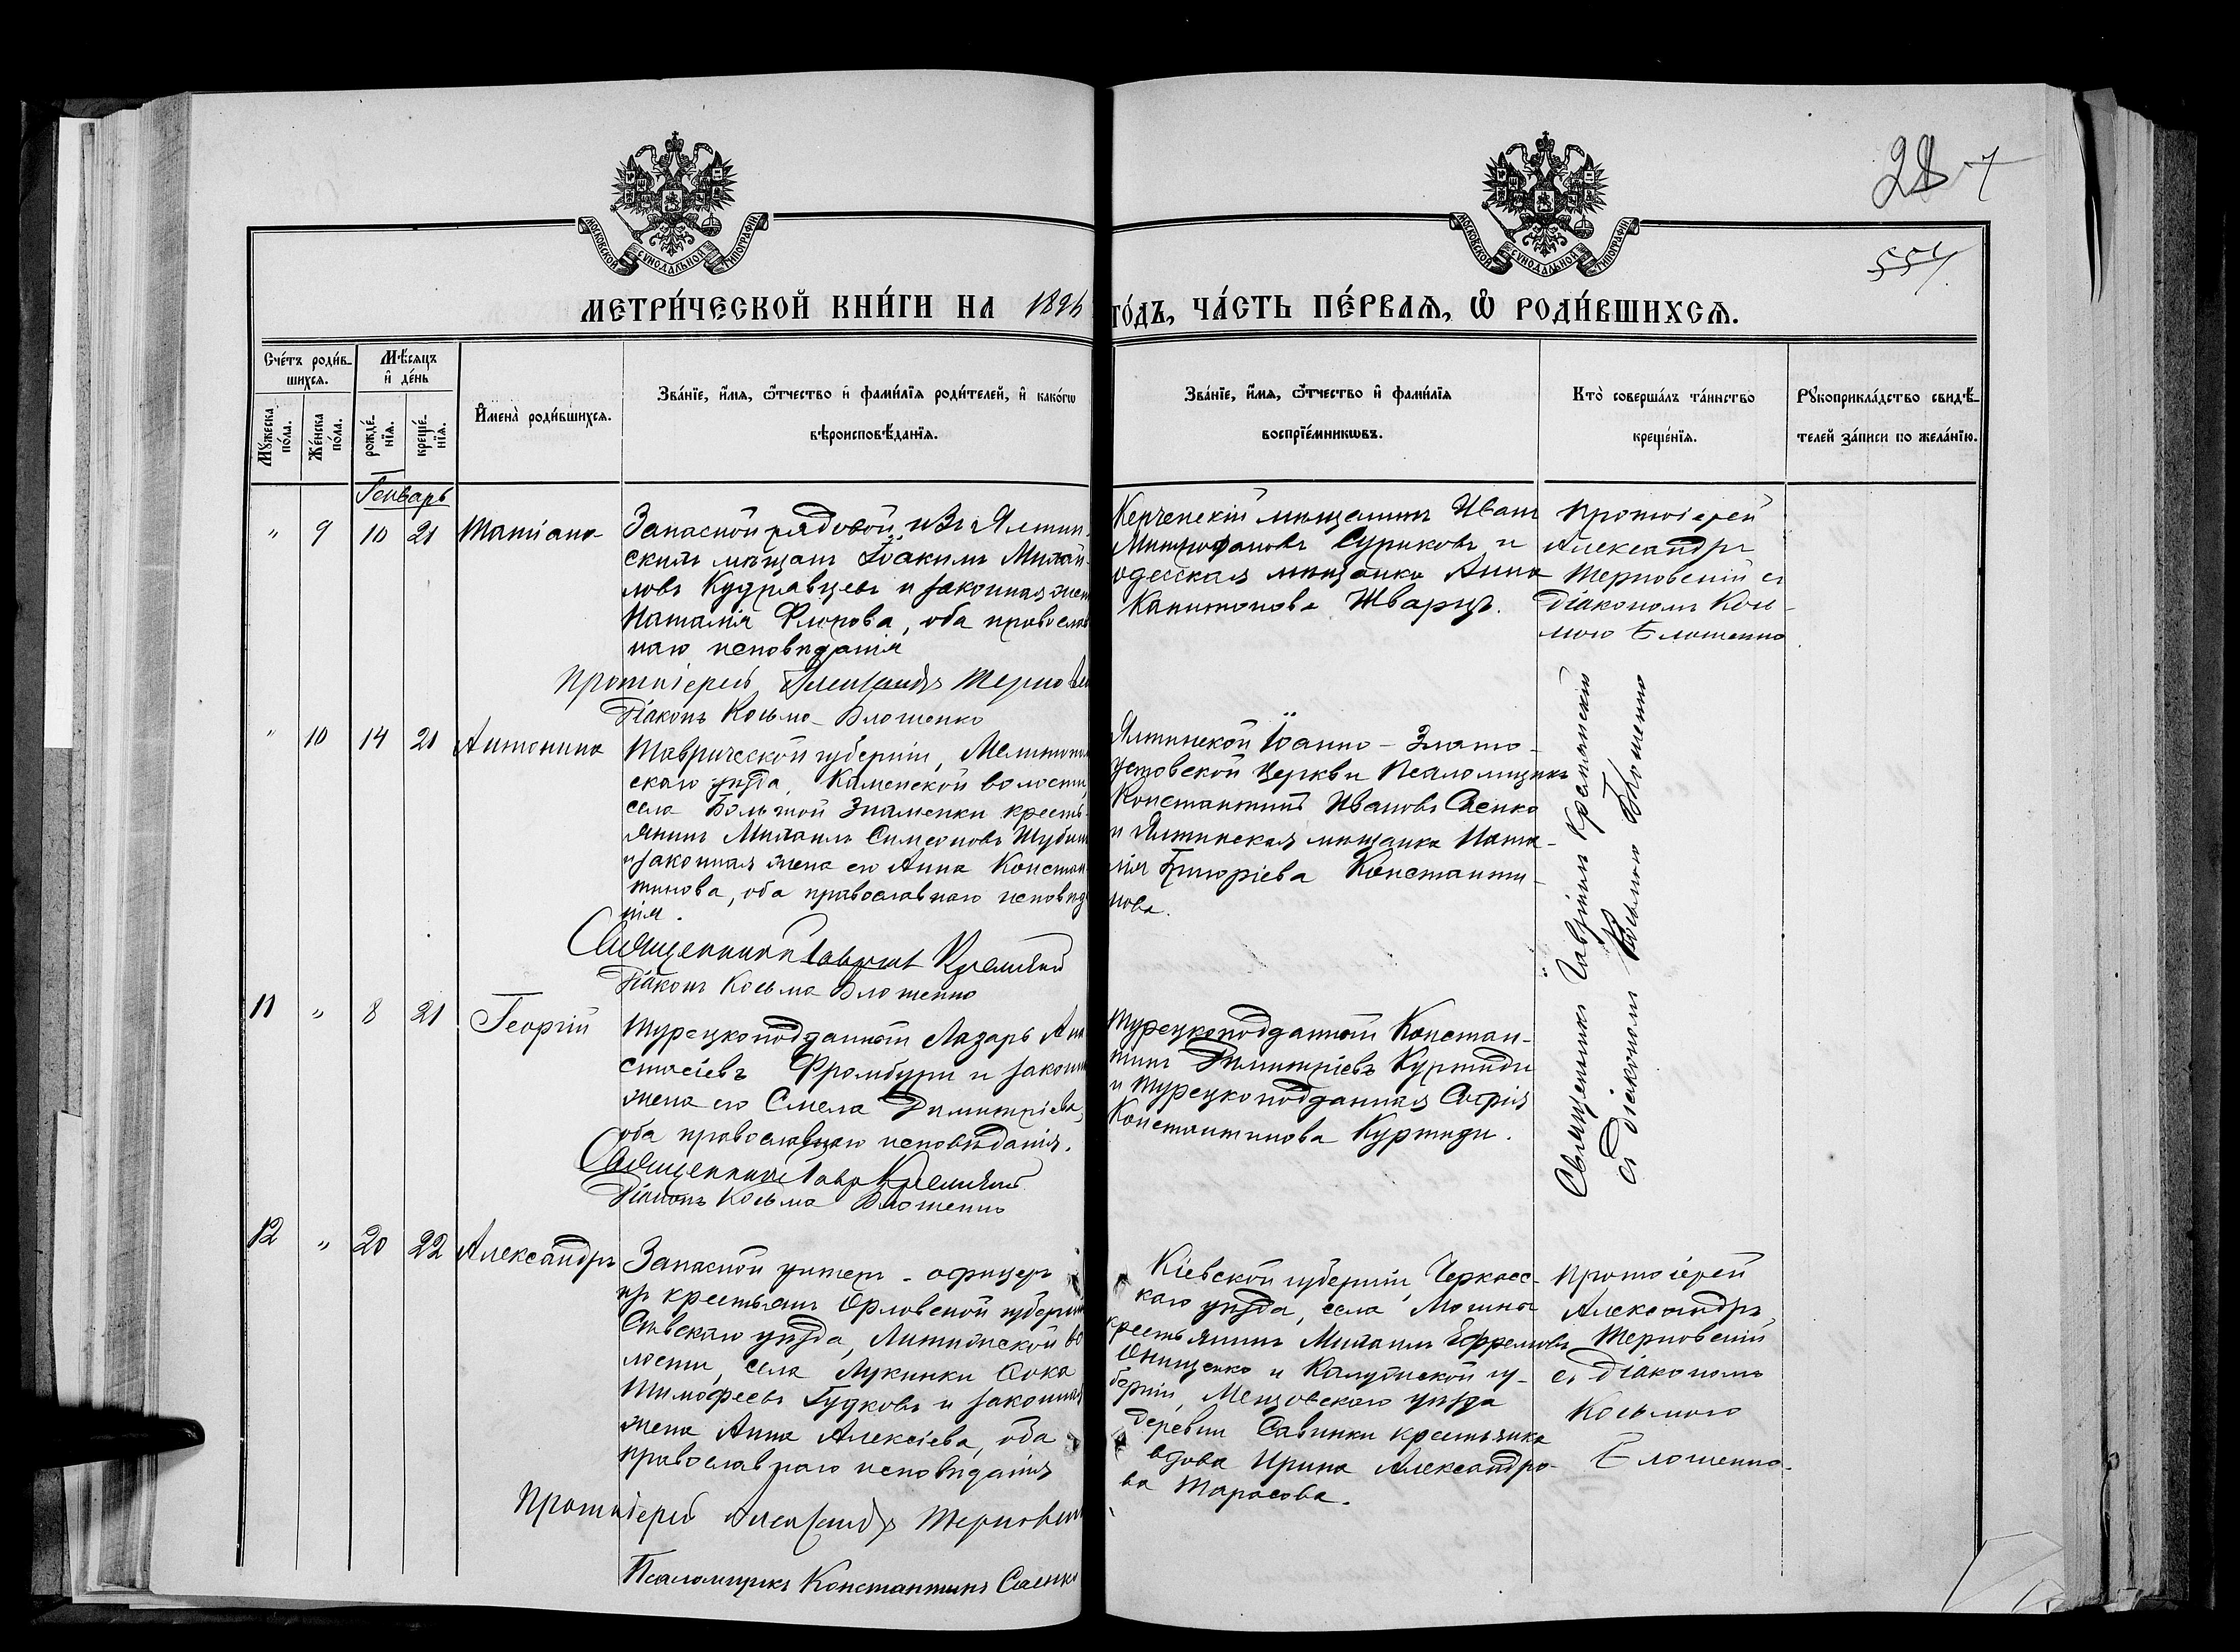 МОСКОВСКОЙ СѴНОДАЛЬНОЙ ТИПОГРАФІИ
МОСКОВСКОЙ СѴНОДАЛЬНОЙ ТИПОГРАФІИ
28 7
554
МЕТРИ́ЧЕСКОЙ КНИ́ГИ НА 1896
ГО́ДЪ, ЧА́СТЬ ПЕ́РВАѦ, Ѡ РОДИ́ВШИХСѦ.
Сче́тъ роди́в-
шихсѧ.
Мꙋжеска по́ла.
Же́нска по́ла.
Мѣ́сѧцъ
и҆ де́нь
рожде́-
нїѧ.
креще́-
нїѧ.
И҆мена̀ роди́вшихсѧ.
Зва́нїе, и҆́мѧ, ѻ҆́тчество и҆ фами́лїѧ роди́телей, и҆ како́гѡ
вѣроисповѣ́данїѧ.
Зва́нїе, и҆́мѧ, ѻ҆́тчество и҆ фами́лїѧ
воспрїе́мникѡвъ.
Кто̀ соверша́лъ та́инство
креще́нїѧ.
Рꙋкоприкла́дство свидѣ́-
телей за́писи по жела́нїю.
Генварь
" 9 10 21 Татіана
Запасной рядовой, изъ Ялтин-
скихъ мѣщанъ Іоакимъ Михаи-
ловъ Кудрявцевъ и законная жен
Наталія Флорова, оба православ
наго исповѣданія
Протоіерей Александръ Тернов
Діаконъ Косьма Блошенко
Керченскій мѣщанинъ Иванъ
Митрофановъ Суриковъ и
одесская мѣщанка Анна
Капитонова Шварцъ.
Протоіерей
Александръ
Терновскій съ
діакономъ Кось-
мою Блошенко
" 10 14 21 Антонина
Таврической губерніи, Мелитопол
скаго уѣзда, Каменской волости,
села Большой Знаменки кресть-
янинъ Михаилъ Симеоновъ Шубин
и законная жена его Анна Констан
тинова, оба православнаго исповѣд
нія.
Священникъ Гавріилъ Кремянскій
Діаконъ Косьма Блошенко
Ялтинской Іоанно-Злато-
устовской церкви псаломщикъ
Константинъ Ивановъ Саенко
и Ялтинская мѣщанка Ната-
лія Григоріева Константи-
нова.
Священникъ Гавріилъ Кремянскій
съ діакономъ Косьмою Блошенко
11 " 8 21 Георгій
Турецкоподданный Лазарь Ана
стасіевъ Фромбули и законн
жена его Смела Димитріева,
оба православнаго исповѣданія.
Священникъ Гавр Кремянскій
Діаконъ Косьма Блошенко
Турецкоподданный Констан-
тинъ Димитріевъ Куртиди
и Турецкоподданная Софія
Константинова Куртиди.
12 " 20 22 Александръ
Запасной унтеръ-офицеръ
изъ крестьянъ Орловской губерніи
Сѣвскаго уѣзда, Литижской во
лости, села Лукинки Фока
Тимофеевъ Гудковъ и законная
жена Анна Алексіева, оба
православнаго исповѣданія
Протоіерей Александръ Терновскій
Псаломщикъ Константинъ Саенко
Кіевской губерніи, Черкасс-
каго уѣзда, села Мошны
крестьянинъ Михаилъ Ефремовъ
Онищенко и Калужской гу-
берніи, Мещовскаго уѣзда
деревни Савинки крестьянка
вдова Ирина Александро-
ва Тарасова.
Протоіерей
Александръ
Терновскій
съ діакономъ
Косьмою
Блошенко.